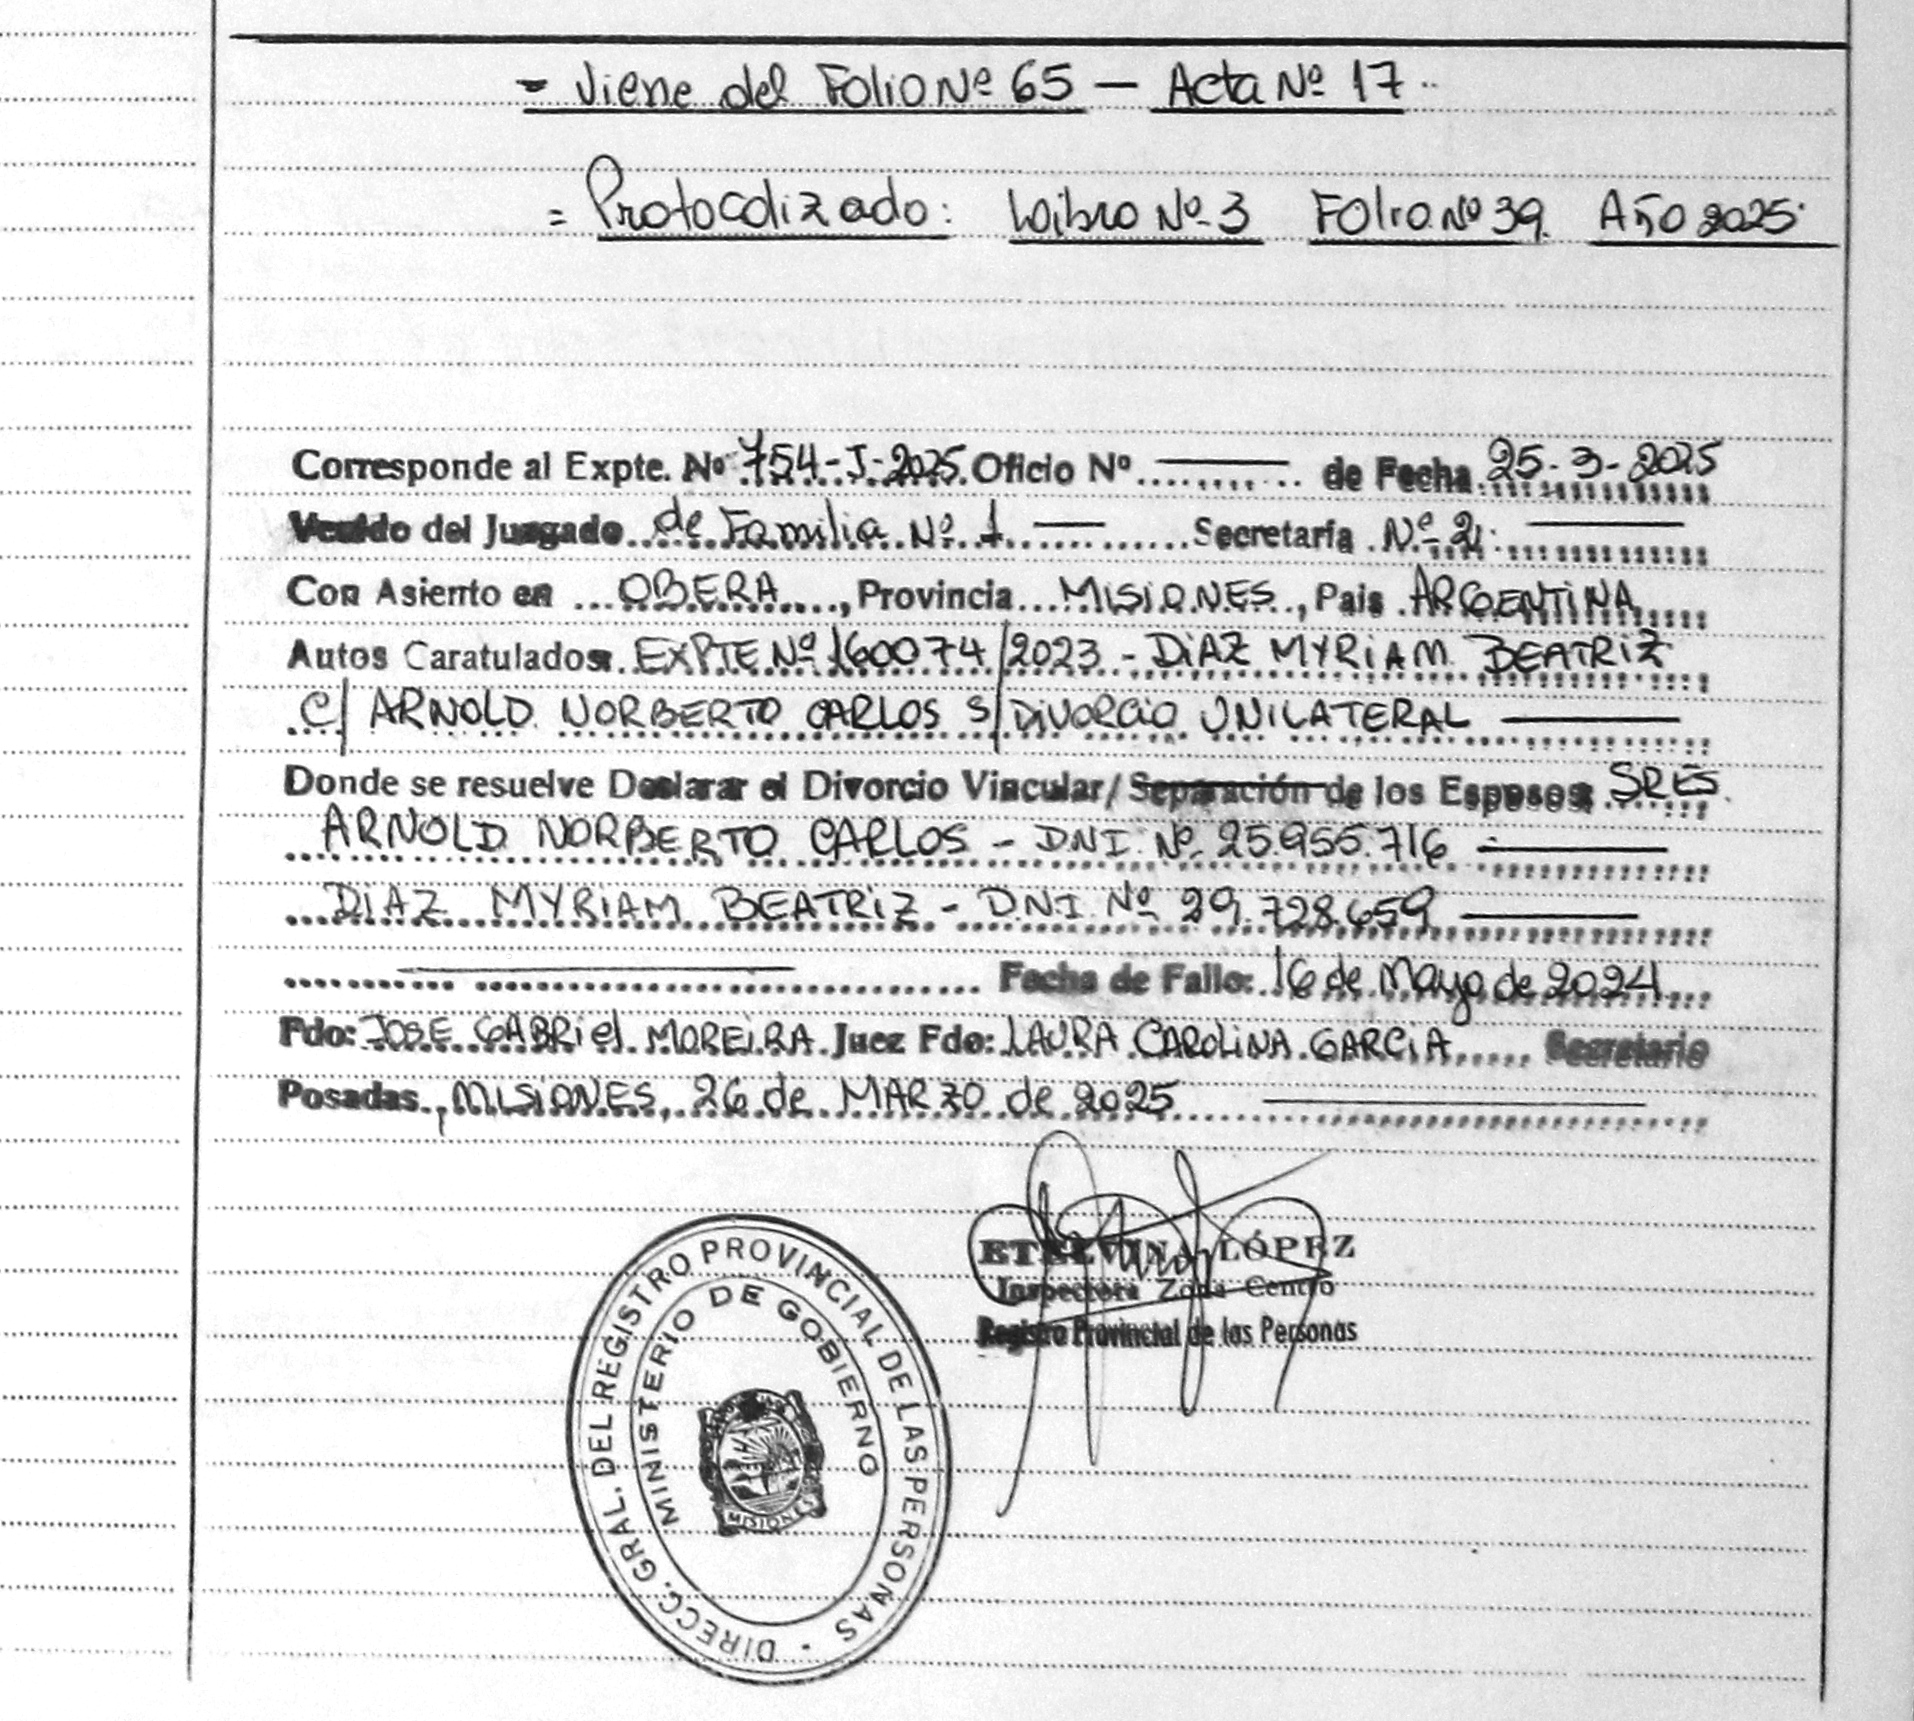 - Viene del Folio Nº 65 — Acta Nº 17
= Protocolizado: Libro Nº 3 Folio Nº 39. Año 2025.
Corresponde al Expte. Nº 754-J-2025. Oficio Nº ——— de Fecha 25-3-2025
Venido del Juzgado de Familia Nº 1 —— Secretaría Nº 2. ———
Con Asiento en OBERA, Provincia MISIONES, Pais ARGENTINA
Autos Caratulados: EXPTE Nº 160074/2023 - DIAZ MYRIAM BEATRIZ
C/ ARNOLD NORBERTO CARLOS S/ DIVORCIO UNILATERAL ———
Donde se resuelve Declarar el Divorcio Vincular/ Separación de los Esposos SRES.
ARNOLD NORBERTO CARLOS - DNI. Nº 25.955.716 ———
DIAZ MYRIAM BEATRIZ - D.N.I. Nº 29.728.659 ———
——— Fecha de Fallo: 16 de Mayo de 2024
Fdo: JOSE GABRIEL MOREIRA Juez Fdo: LAURA CAROLINA GARCIA Secretario
Posadas, MISIONES, 26 de MARZO de 2025 ———
ETELVINA LÓPEZ
Inspectora Zona Centro
Registro Provincial de las Personas
DIRECC. GRAL. DEL REGISTRO PROVINCIAL DE LAS PERSONAS
MINISTERIO DE GOBIERNO
MISIONES